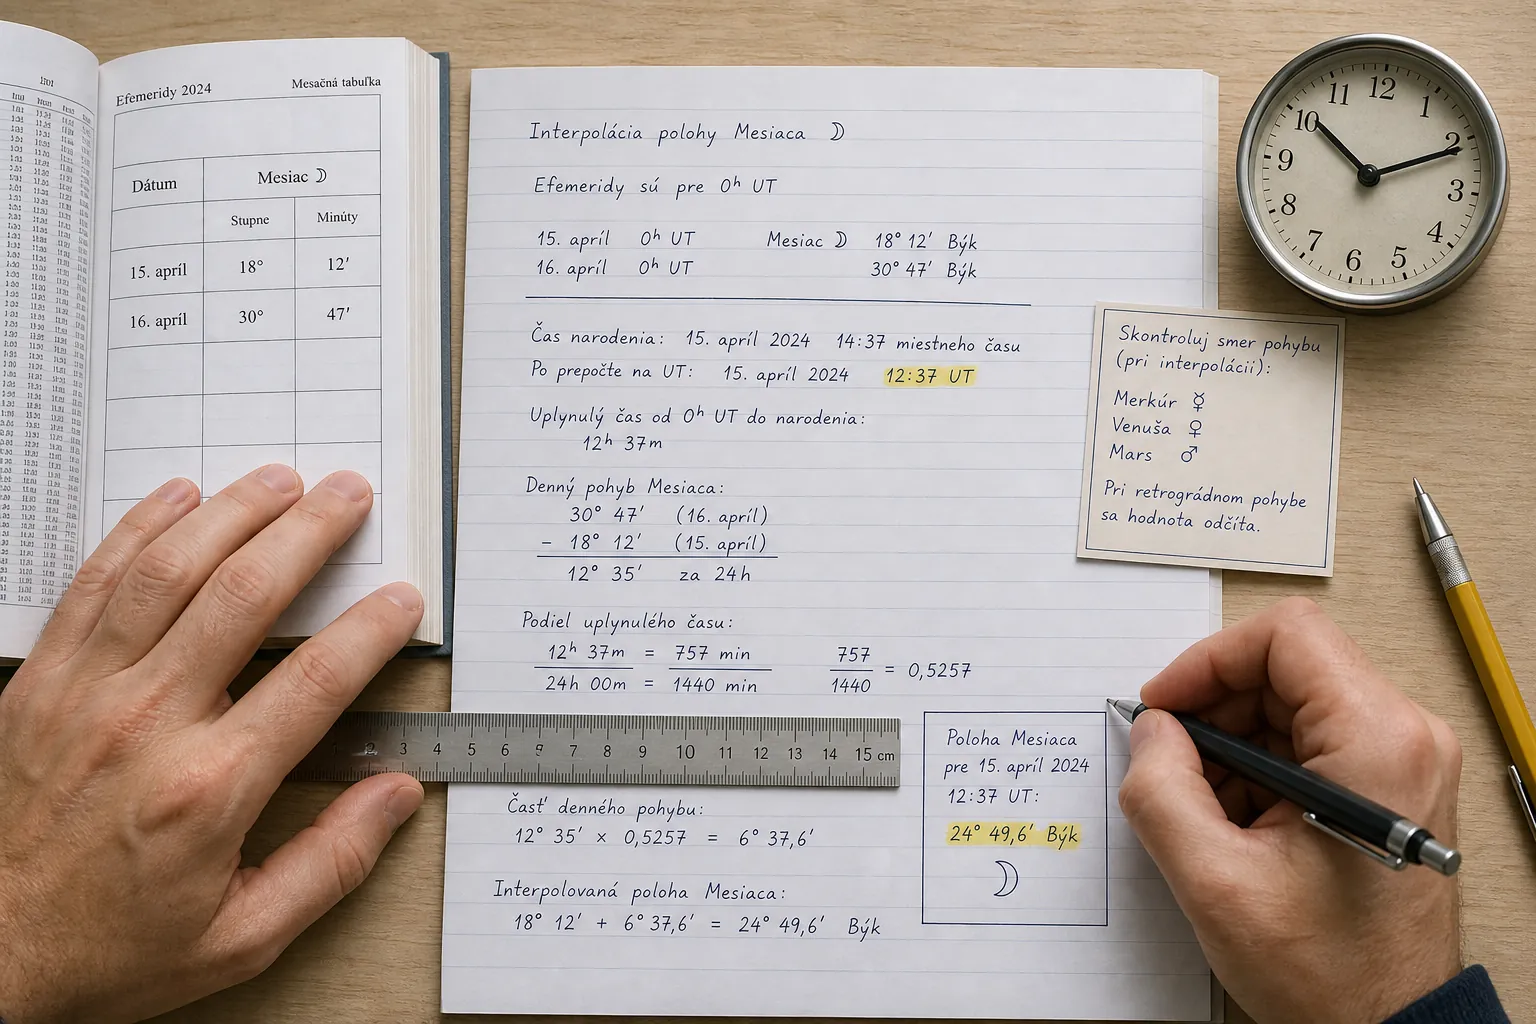 Efemeridy 2024 Mesačná tabuľka
Dátum Mesiac ☽
Stupne Minúty
15. apríl 18° 12'
16. apríl 30° 47'
Interpolácia polohy Mesiaca ☽
Efemeridy sú pre 0ʰ UT
15. apríl 0ʰ UT Mesiac ☽ 18° 12' Býk
16. apríl 0ʰ UT 30° 47' Býk
Čas narodenia: 15. apríl 2024 14:37 miestneho času
Po prepočte na UT: 15. apríl 2024 12:37 UT
Uplynulý čas od 0ʰ UT do narodenia:
12ʰ 37m
Denný pohyb Mesiaca:
30° 47' (16. apríl)
– 18° 12' (15. apríl)
12° 35' za 24h
Podiel uplynulého času:
12ʰ 37m = 757 min
24h 00m = 1440 min
757
1440 = 0,5257
Časť denného pohybu:
12° 35' × 0,5257 = 6° 37,6'
Interpolovaná poloha Mesiaca:
18° 12' + 6° 37,6' = 24° 49,6' Býk
Poloha Mesiaca
pre 15. apríl 2024
12:37 UT:
24° 49,6' Býk
☽
Skontroluj smer pohybu
(pri interpolácii):
Merkúr ☿
Venuša ♀
Mars ♂
Pri retrográdnom pohybe
sa hodnota odčíta.
12 1 2 3 4 5 6 7 8 9 10 11
1 2 3 4 5 6 7 8 9 10 11 12 13 14 15 cm